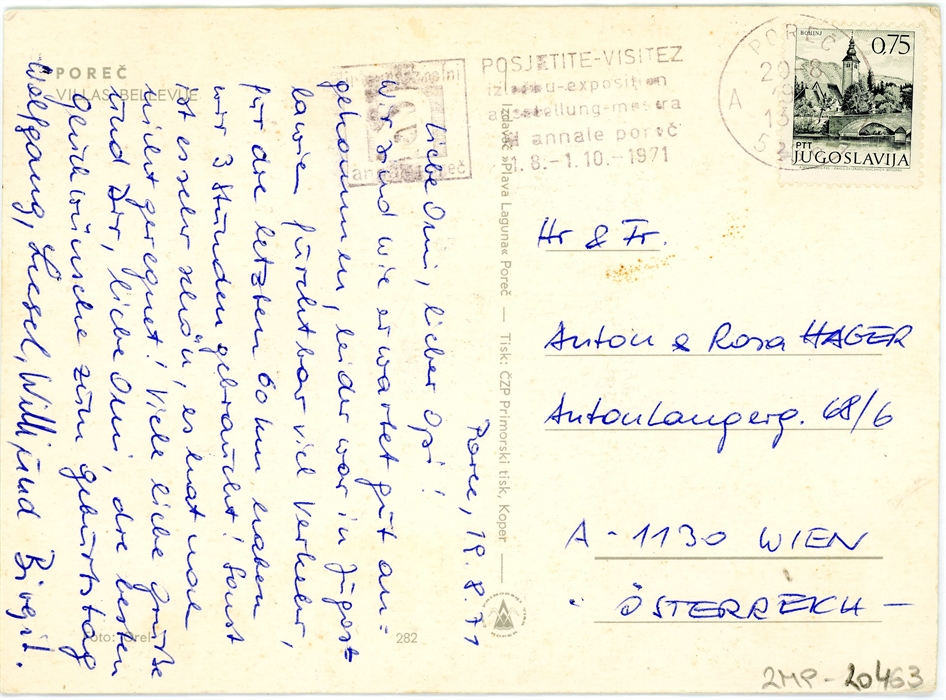 POREČ
VILLAS BELLEVUE
Porec, 19.8.71
Liebe Omi, lieber Opi!
Wir sind wie erwartet gut an-
gekommen, leider war in Jugos-
lawien furchtbar viel Verkehr,
für die letzten 60 km haben
wir 3 Stunden gebraucht! Sonst
ist es sehr schön, es hat noch
nicht geregnet! Viele liebe Grüße
und Dir, liebe Omi, die besten
Glückwünsche zum Geburtstag
Wolfgang, Liesel, Willi und Birgit.
Foto: Orel
282
Izdavač »Plava Laguna« Poreč — Tisk: ČZP Primorski tisk, Koper
POSJETITE-VISITEZ
izložbu-exposition
ausstellung-mostra
annale poreč
1.8.-1.10.-1971
annale poreč
POREČ
A
BOHINJ
0,75
PTT
JUGOSLAVIJA
Hr & Fr.
Anton & Rosa HAGER
Antonlangerg. 68/6
A - 1130 WIEN
ÖSTERREICH -
2MP-20463